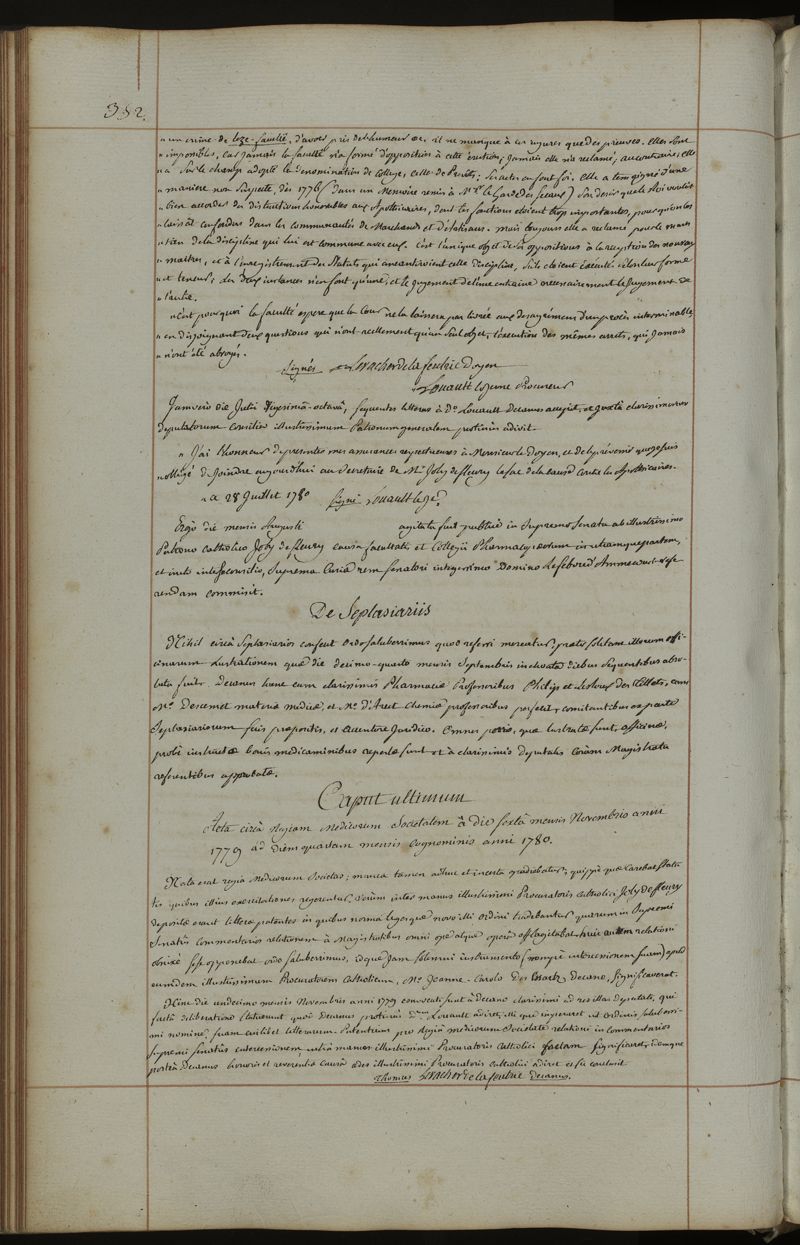 382.
" un crime de leze-faculté, d'avoir pris de l'humeur &c. il ne manque à ces injures que des preuves. Elles sont
" impossibles, car jamais la faculté n'a formé d'opposition à cette érection; jamais elle n'a reclamé, au contraire, elle
" a sur le champ adopté la denomination de College, celle de Prevôts; ses actes en font foi. Elle a temoigné d'une
" maniere non suspecte, dès 1776 (dans un Memoire remis à Mgr le Garde des Sceaux) son desir que le Roi voulut
" bien accorder des distinctions honorables aux Apothicaires, dont les fonctions etoient trop importantes, pour qu'on les
" laissât confondus dans les communautés de Marchands et d'artisans. Mais toujours elle a reclamé pour le main
" tien de la discipline qui lui est commune avec eux. C'est l'unique objet de ses oppositions à la reception des nouveaux
" maitres, et à l'enregistrement des Statuts qui aneantiroient cette discipline, s'ils etoient executés selon leur forme
" et teneur, les deux instances n'en font qu'une, et le jugement de l'une entraine necessairement le jugement de
" l'autre.
" C'est pourquoi la faculté espere que la Cour ne la laissera pas livrée aux desagrémens d'un procès interminable,
" en disjoignant deux questions qui n'ont reellement qu'un seul objet, l'execution des mêmes arrets, qui jamais
" n'ont été abrogés.
Signés Levacher de la feutrie Doyen
Louault le jeune Procureur
Jamvero die Julii vigesimâ-octavâ, sequentes litteras à Do. Louault Decanus accepit, et juxtà clarissimorum
deputatorum consilia illustrissimum Patronum generalem protinùs adivit.
" J'ai l'honneur de presenter mes assurances respectueuses à Monsieur le Doyen, et de le prévenir que je suis
" obligé de joindre aujourd'hui au Secretaire de Mr. Joly de fleury le sac de la cause contre les Apothicaires.
" a 28 Juillet 1780 Signé Louault le je.
Ergò die mensis Augusti agitata fuit publicè in Supremo Senatu ab illustrissimo
Patrono Catholico Joly de fleury causa facultatis et Collegii Pharmacopaeorum in utramque partem,
et inito inter se consilio, Suprema Curia rem Senatori integerrimo Domino Lefebvre d'Ammecourt refe
rendam commisit.
De Seplasiariis
Nihil circà Seplasiarios censuit ordo saluberrimus quod referri mereatur, praeter solitam illorum offi-
cinarum lustrationem quae die decimo-quarto mensis Septembris inchoata diebus sequentibus abso-
luta fuit. Decanus hanc cum clarissimis Pharmaciae Professoribus Philip et Leshoux des Tillets, cum
Mo. Descemet materiae medicae, et Mo. d'Arcet chemiae professoribus perfecit, comitantibus ex parte
Seplasiariorum suis praepositis, et executore juridico. Omnes porrò, quae lustratae sunt, officinae,
probè instructae bonis medicaminibus repertae sunt et à clarissimis deputatis coràm Magistratu
referentibus approbatae.
Caput ultimum
Acta circà Regiam Medicorum Societatem à die sextâ mensis Novembris anni
1779 ad diem quartam mensis cognominis anni 1780.
Nata erat regia Medicorum Societas; manca tamen adhuc et incerta gradiebatur, quippè quae carebat statu
tis quibus illius exercitationes regerentur. Verùm inter manus illustrissimi Procuratoris Catholici Joly de fleury
depositae erant litterae patentes in quibus norma legesque novo illi ordini tradebantur quarum in Supremi
Senatûs commentarios relationem à Magistratibus omni ope atque operâ efflagitabat. huic autem relationi
obnixè sese opponebat ordo saluberrimus, idque jam solemni instrumento (nempè intercessionem suam) apud
eumdem illustrissimum Procuratorem Catholicum, Mr. Joanne-Carolo Des Essartz Decano, significaverat.
Hinc die undecimo mensis Novembris anni 1779 convocati sunt à Decano clarissimi ad res illas deputati, qui
factâ deliberatione statuerunt quòd Decanus protinùs Dnum Louault adiret, illi que injungeret ut ordinis saluberri-
mi nomine, suam cuilibet litterarum-Patentium pro Regiâ medicorum Societate relationi in commentarios
Supremi Senatûs intercessionem, intrà manus illustrissimi Procuratoris Catholici factam significaret, idemque
posteà Decanus honoris et reverentiae causâ aedes illustrissimi Procuratoris Catholici adiret et sic conclusit
Thomas Levacher de la feutrie Decanus.